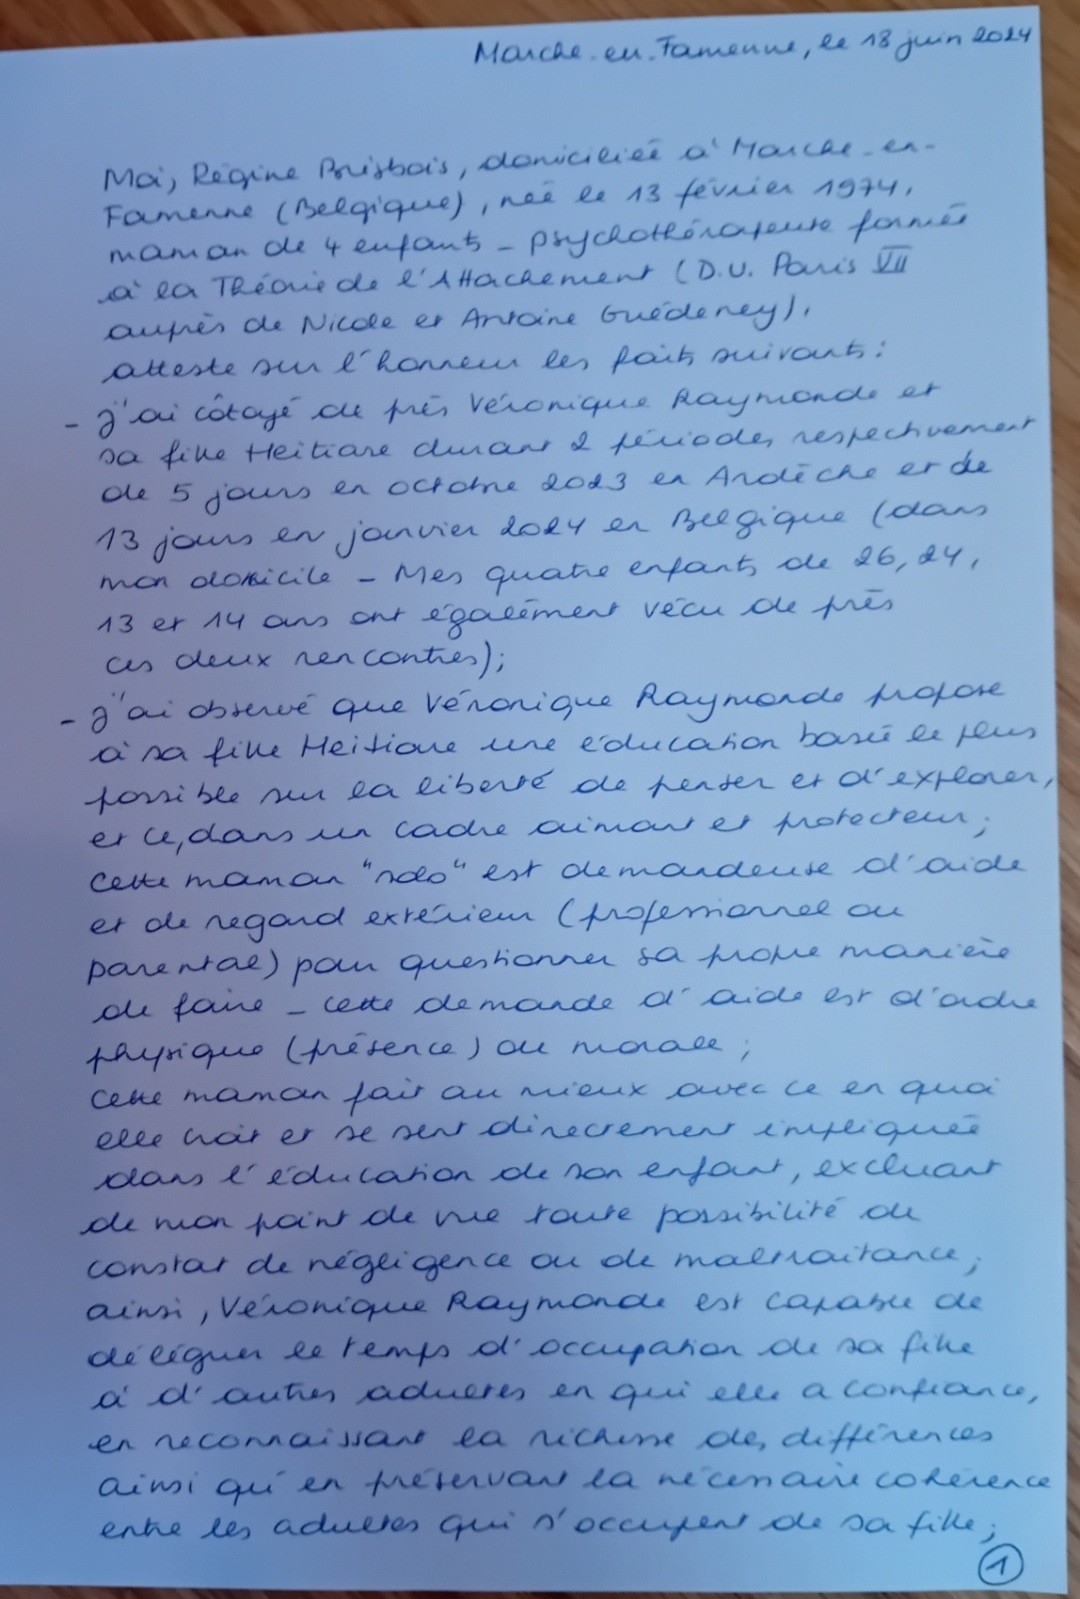 Marche-en-Famenne, le 18 juin 2024
Moi, Régine Brisbois, domiciliée à Marche-en-
Famenne (Belgique), née le 13 février 1974,
maman de 4 enfants - psychothérapeute formée
à la Théorie de l'Attachement (D.U. Paris VII
auprès de Nicole et Antoine Guédeney),
atteste sur l'honneur les faits suivants :
- j'ai côtoyé de près Véronique Raymonde et
sa fille Heitiare durant 2 périodes, respectivement
de 5 jours en octobre 2023 en Ardèche et de
13 jours en janvier 2024 en Belgique (dans
mon domicile - Mes quatre enfants de 26, 24,
13 et 14 ans ont également vécu de près
ces deux rencontres);
- j'ai observé que Véronique Raymonde propose
à sa fille Heitiare une éducation basée le plus
possible sur la liberté de penser et d'explorer,
et ce, dans un cadre aimant et protecteur;
cette maman "solo" est demandeuse d'aide
et de regard extérieur (professionnel ou
parental) pour questionner sa propre manière
de faire - cette demande d'aide est d'ordre
physique (présence) ou morale;
cette maman fait au mieux avec ce en quoi
elle croit et se sent directement impliquée
dans l'éducation de son enfant, excluant
de mon point de vue toute possibilité de
constat de négligence ou de maltraitance;
ainsi, Véronique Raymonde est capable de
déléguer le temps d'occupation de sa fille
à d'autres adultes en qui elle a confiance,
en reconnaissant la richesse des différences
ainsi qu'en préservant la nécessaire cohérence
entre les adultes qui s'occupent de sa fille;
1